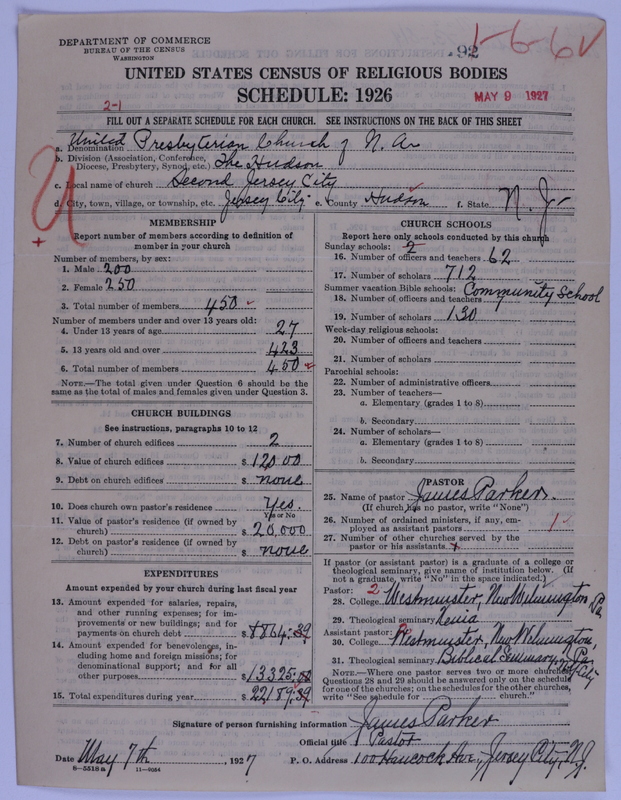 DEPARTMENT OF COMMERCE
BUREAU OF THE CENSUS
WASHINGTON
92
1-6-6V
UNITED STATES CENSUS OF RELIGIOUS BODIES
SCHEDULE: 1926
MAY 9 1927
2-1
FILL OUT A SEPARATE SCHEDULE FOR EACH CHURCH. SEE INSTRUCTIONS ON THE BACK OF THIS SHEET
a. Denomination United Presbyterian Church of N. A
b. Division (Association, Conference, Diocese, Presbytery, Synod, etc.) The Hudson
c. Local name of church Second Jersey City
d. City, town, village, or township, etc. Jersey City e. County Hudson f. State N. J.
MEMBERSHIP
Report number of members according to definition of
member in your church
Number of members, by sex:
1. Male 200
2. Female 250
3. Total number of members 450
Number of members under and over 13 years old:
4. Under 13 years of age 27
5. 13 years old and over 423
6. Total number of members 450
NOTE.—The total given under Question 6 should be the
same as the total of males and females given under Question 3.
CHURCH BUILDINGS
See instructions, paragraphs 10 to 12
7. Number of church edifices 2
8. Value of church edifices $ 120 00
9. Debt on church edifices $ none
10. Does church own pastor's residence Yes.
Yes or No
11. Value of pastor's residence (if owned by
church) $ 20,000
12. Debt on pastor's residence (if owned by
church) $ none
EXPENDITURES
Amount expended by your church during last fiscal year
13. Amount expended for salaries, repairs,
and other running expenses; for im-
provements or new buildings; and for
payments on church debt $ 8864.39
14. Amount expended for benevolences, in-
cluding home and foreign missions; for
denominational support; and for all
other purposes $ 13325.00
15. Total expenditures during year $ 22189.39
CHURCH SCHOOLS
Report here only schools conducted by this church
Sunday schools: 2
16. Number of officers and teachers 62
17. Number of scholars 712
Summer vacation Bible schools: Community School
18. Number of officers and teachers
19. Number of scholars 130
Week-day religious schools:
20. Number of officers and teachers
21. Number of scholars
Parochial schools:
22. Number of administrative officers
23. Number of teachers—
a. Elementary (grades 1 to 8)
b. Secondary
24. Number of scholars—
a. Elementary (grades 1 to 8)
b. Secondary
PASTOR
25. Name of pastor James Parker.
(If church has no pastor, write "None")
26. Number of ordained ministers, if any, em-
ployed as assistant pastors 1
27. Number of other churches served by the
pastor or his assistants x
If pastor (or assistant pastor) is a graduate of a college or
theological seminary, give name of institution below. (If
not a graduate, write "No" in the space indicated.)
Pastor: 2
28. College Westminster, New Wilmington Pa.
29. Theological seminary Xenia
Assistant pastor: 2
30. College Westminster, New Wilmington, Pa
31. Theological seminary Biblical Seminary, N.Y. City
NOTE.—Where one pastor serves two or more churches,
Questions 28 and 29 should be answered only on the schedule
for one of the churches; on the schedules for the other churches,
write "See schedule for church."
Signature of person furnishing information James Parker
Official title Pastor
Date May 7th, 1927 P. O. Address 100 Hancock Ave., Jersey City, N.J.
8—5518a 11—9064